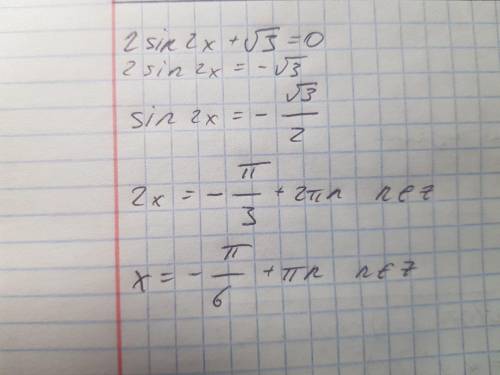 2 sin 2x + √3 = 0
2 sin 2x = -√3
sin 2x = - √3/2
2x = - π/3 + 2πn n∈z
x = - π/6 + πn n∈z